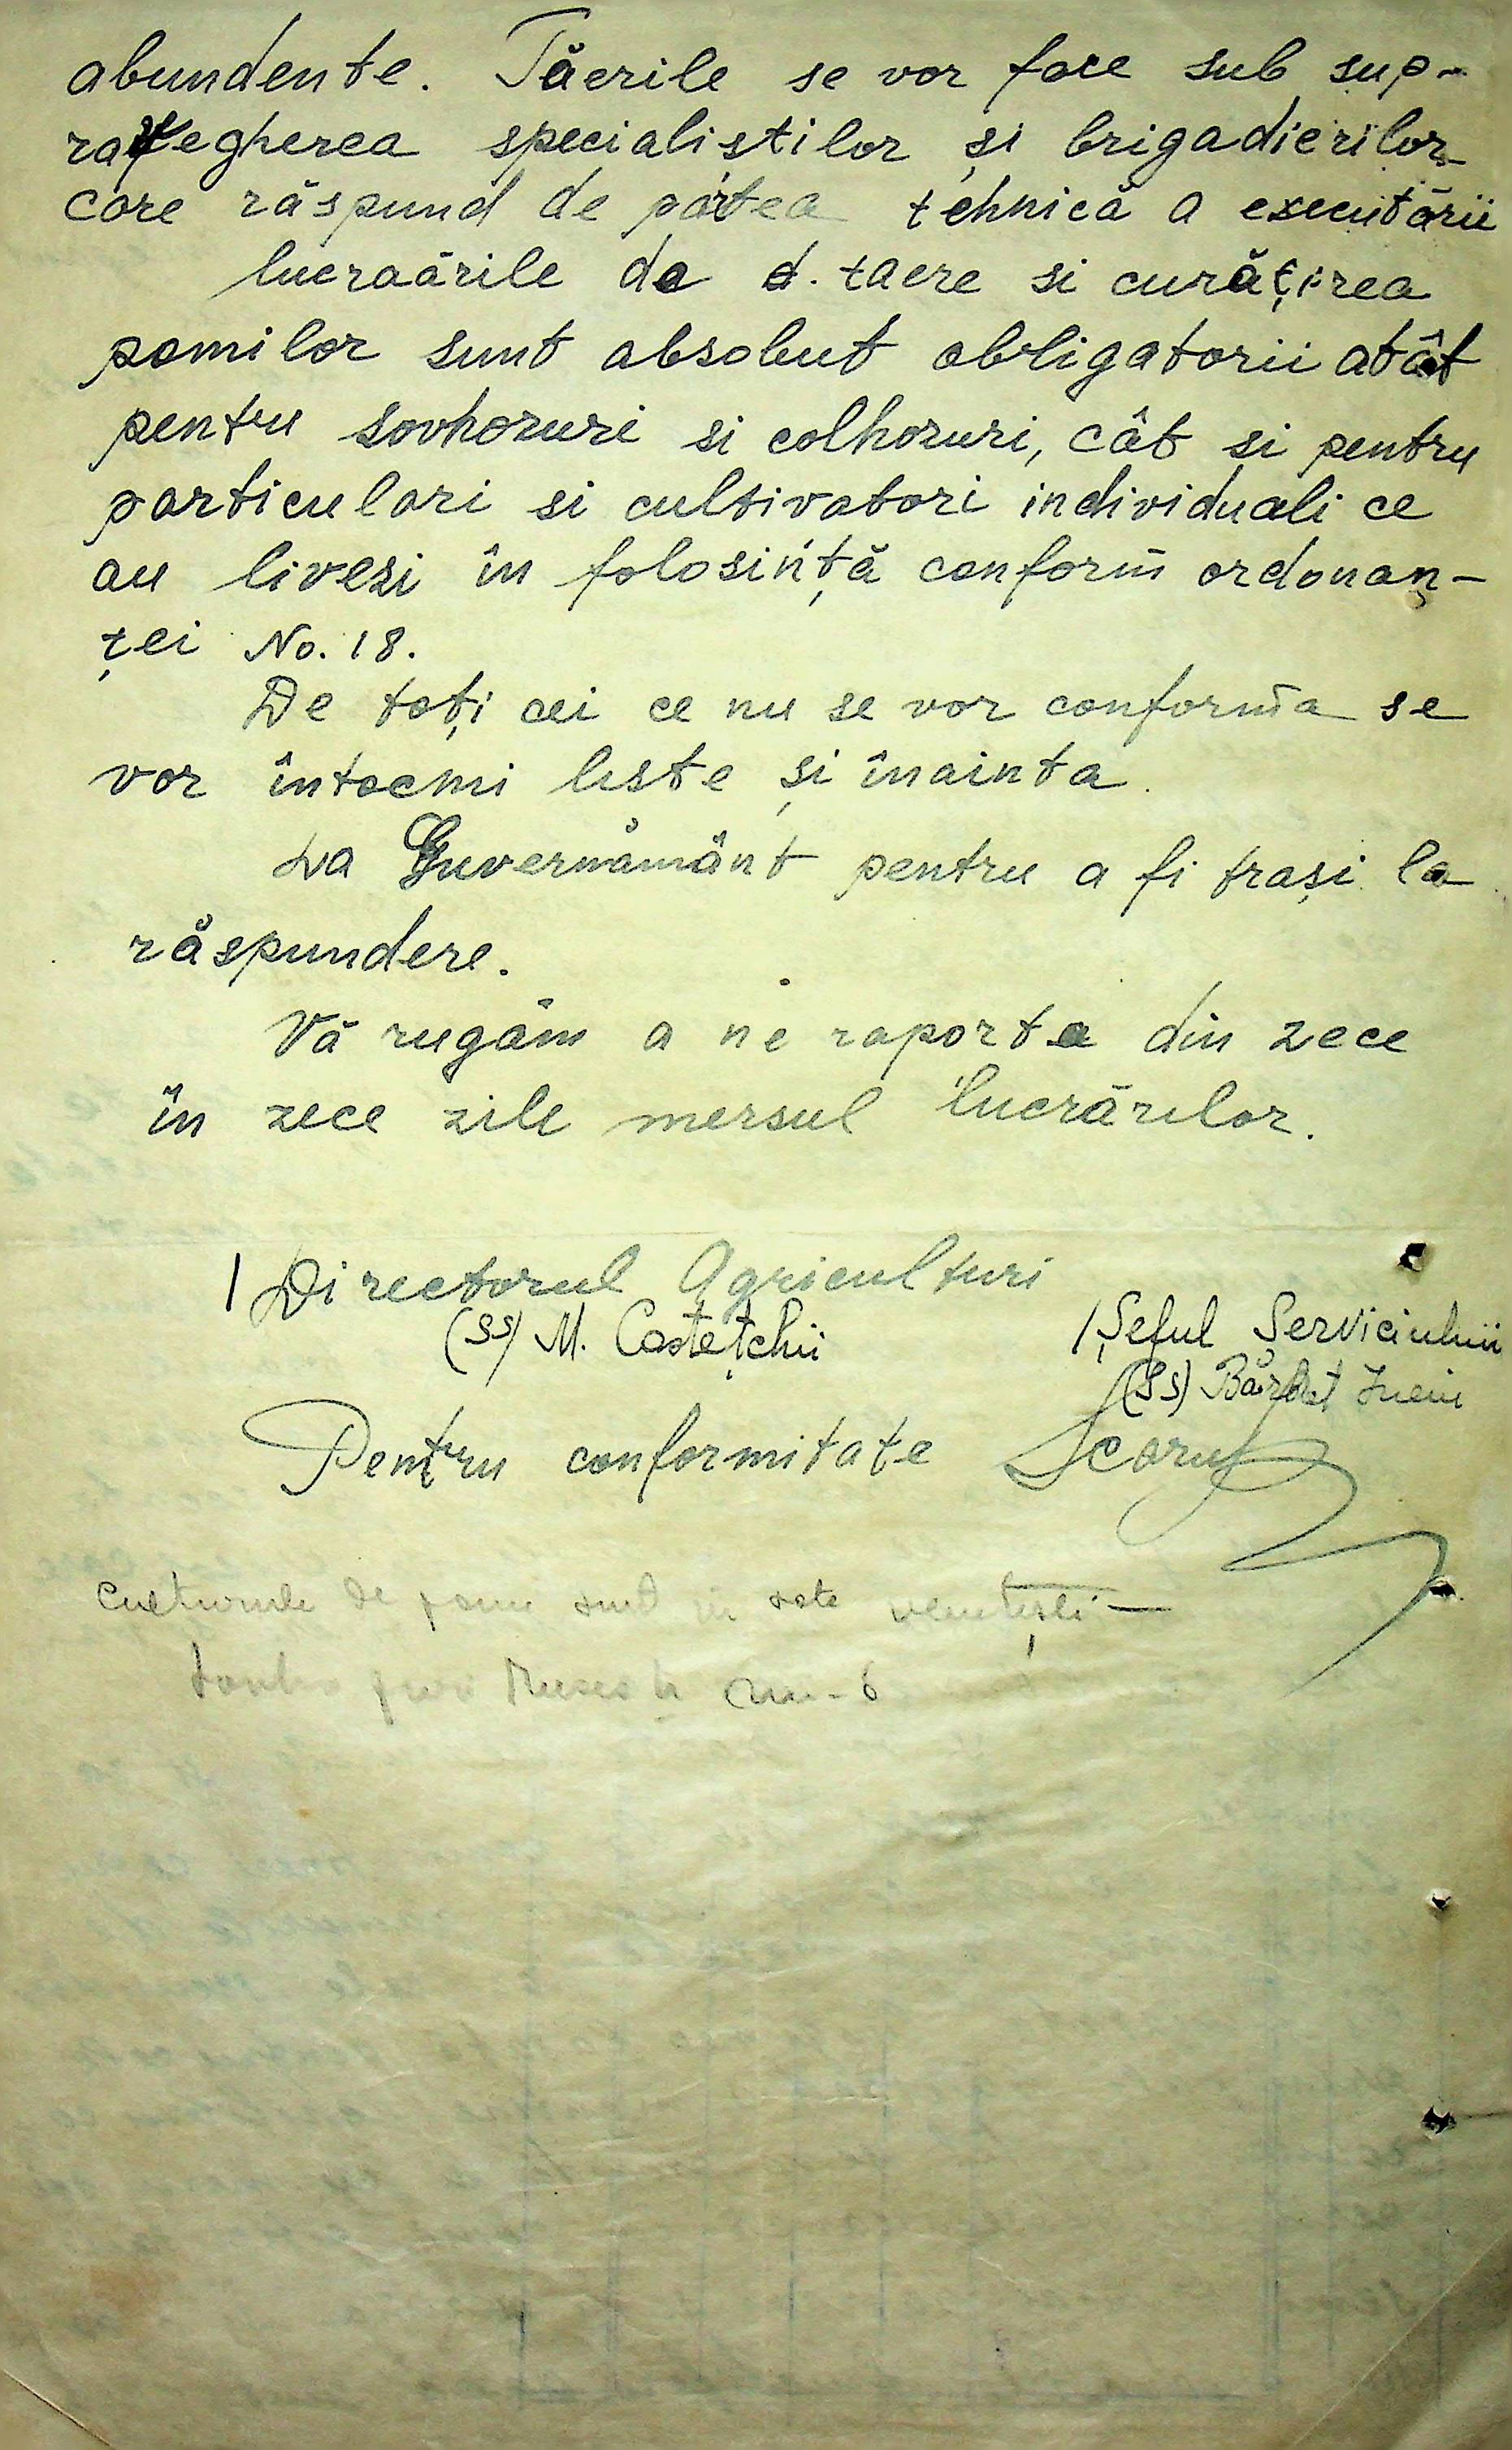 abundente. Tăerile se vor face sub sup-
ravegherea specialistilor și brigadierilor
care răspund de partea tehnică a executării
lucraările de d. taere si curățirea
pomilor sunt absolut obligatorii atât
pentru sovhozuri si colhozuri, cât si pentru
particulari si cultivatori individuali ce
au livezi în folosință conform ordonan-
ței No. 18.
De toți cei ce nu se vor conforma se
vor întocmi liste și înainta
La Guvernământ pentru a fi trași la
răspundere.
Vă rugăm a ne raporta din zece
în zece zile mersul lucrărilor.
/ Directorul Agriculturi
(ss) M. Costețchii
/ Șeful Serviciului
(ss)
Pentru conformitate
Culturile de pomi sunt in sate